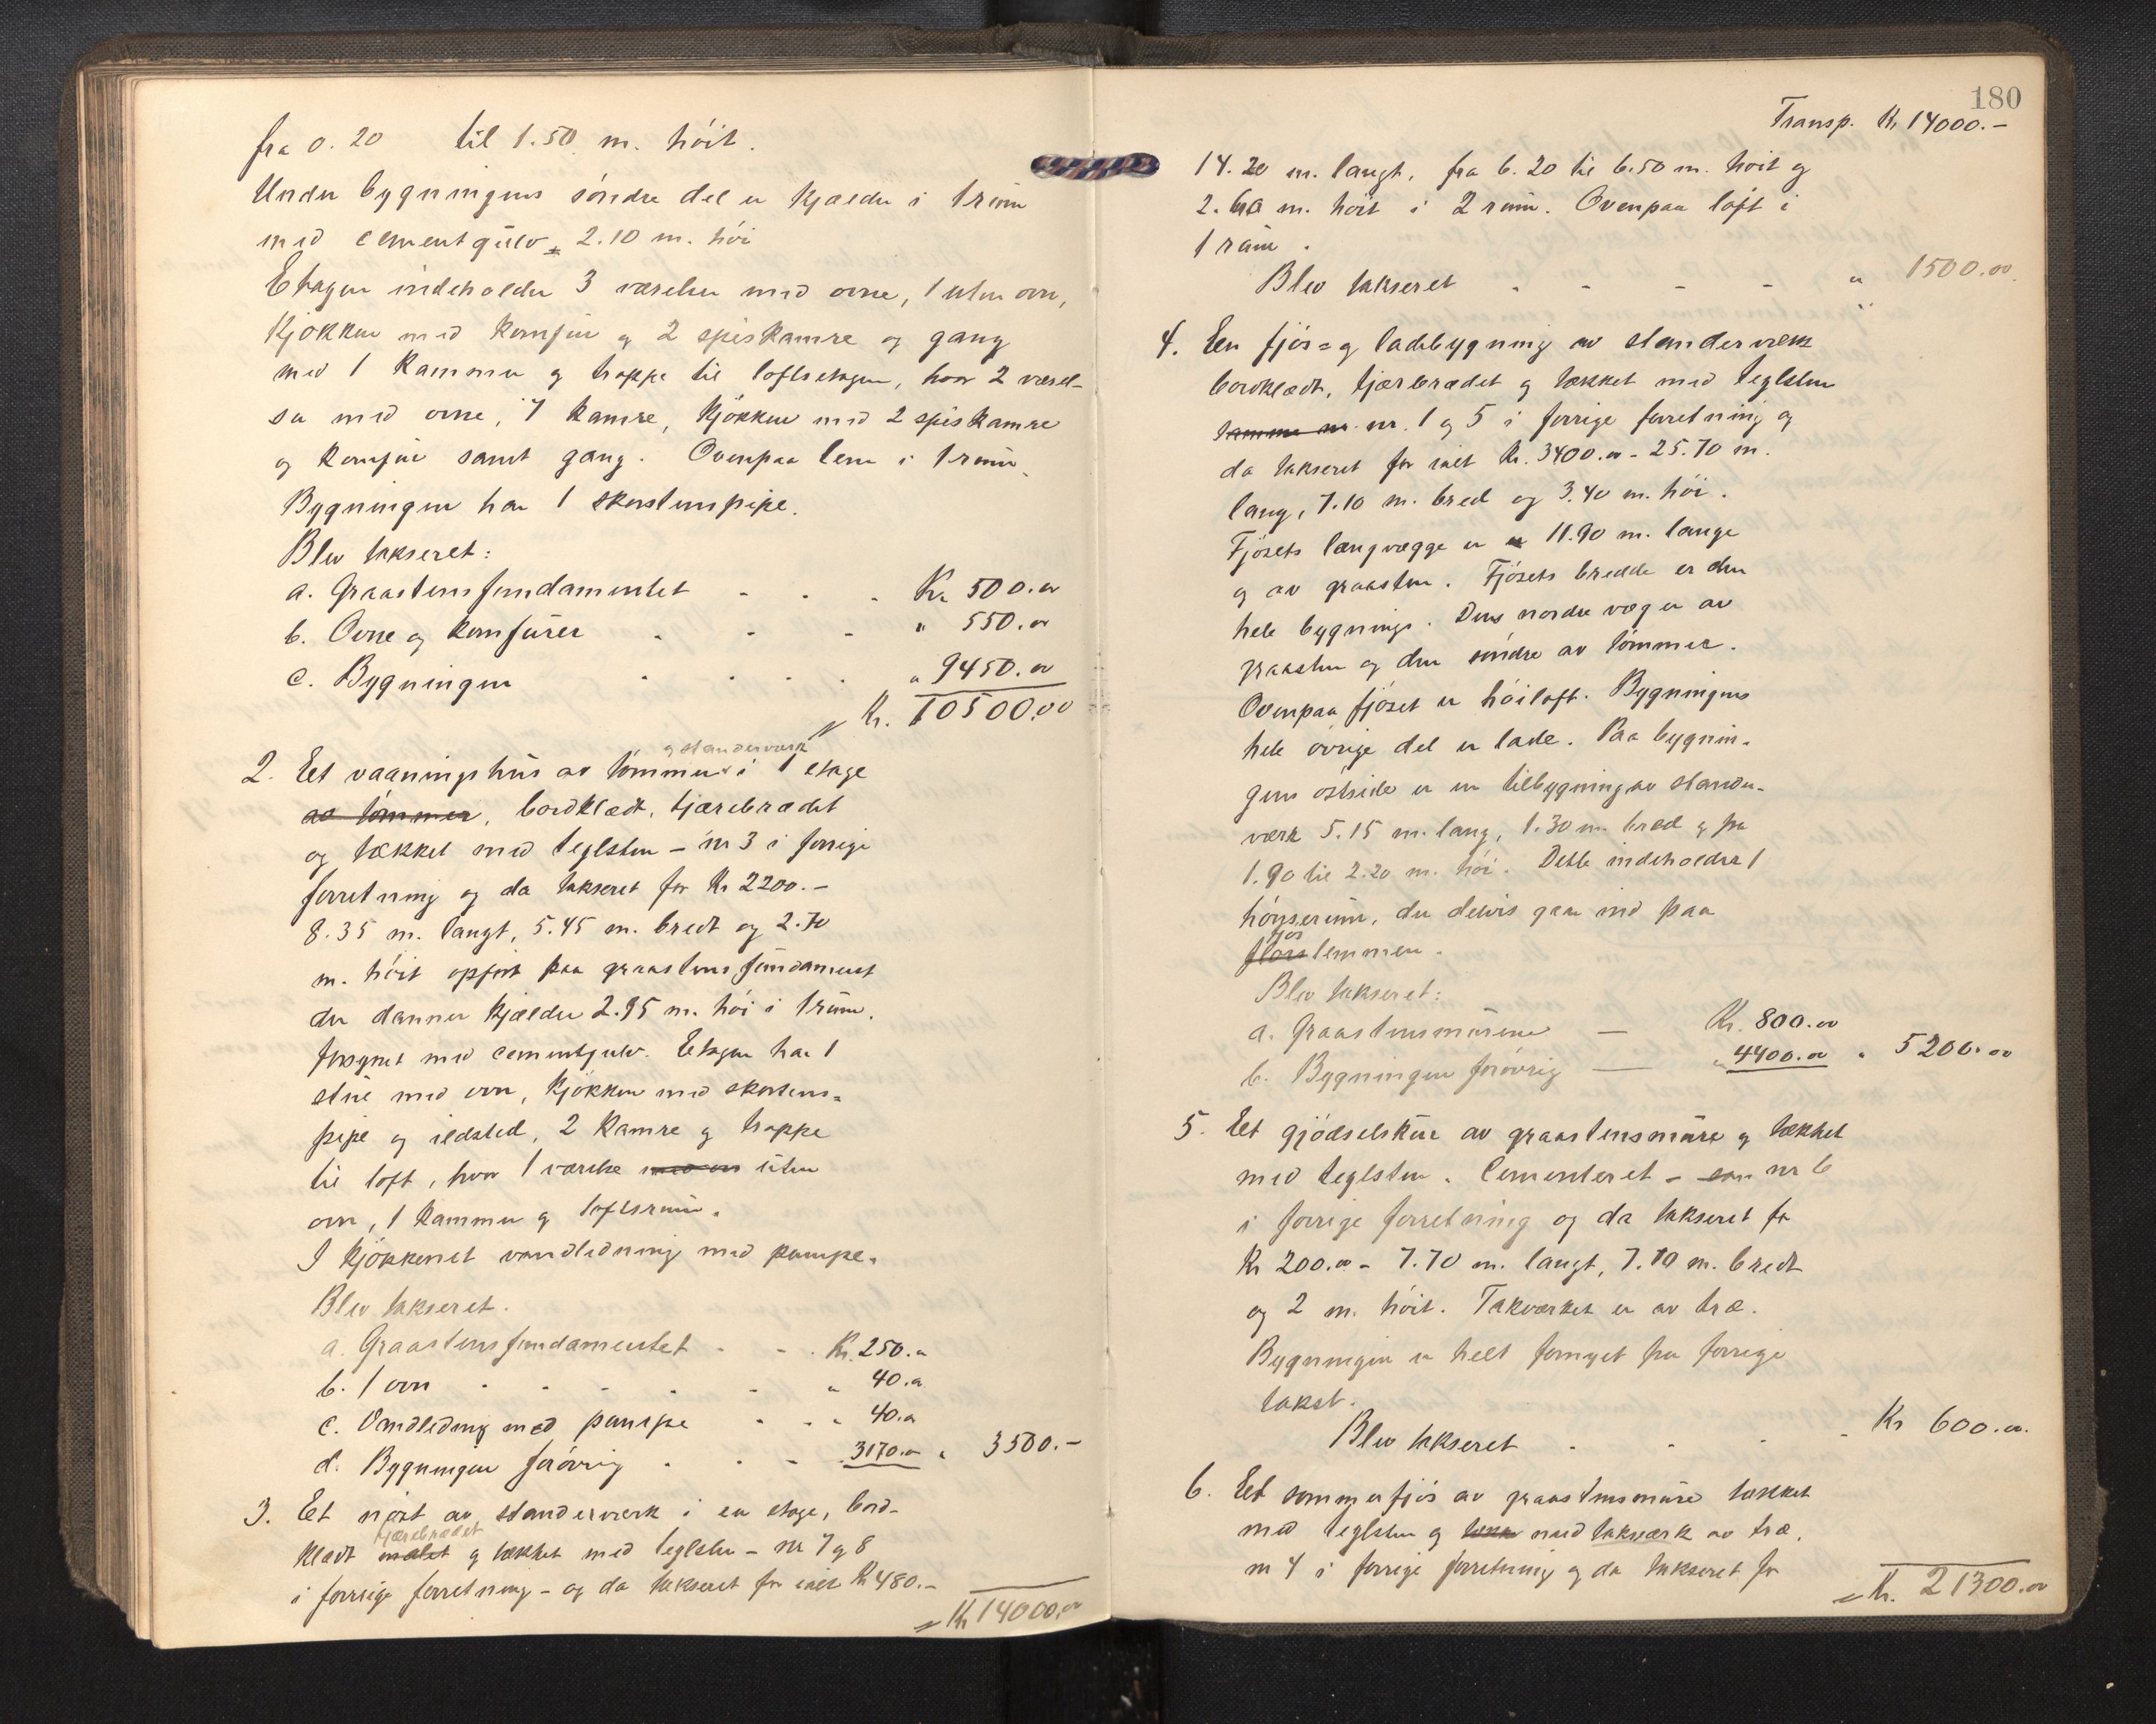 fra 0.20 til 1.50 m. höit.
Under bygningens söndre del er kjælder i 1 rum
med cementgulv - 2.10 m. höi
Etagen indeholder 3 værelser med ovne, 1 uten ovn,
kjökken med komfur og 2 spiskamre og gang
med 1 kammer og trappe til loftsetagen, hvor 2 værel-
ser med ovne, 7 kamre, kjökken med 2 spiskamre
og komfur samt gang. Ovenpaa lem i 1 rum.
Bygningen har 1 skorstenspipe.
Blev takseret:
a. Graastensfundamentet - - - Kr. 500.00
b. Ovne og komfurer - - - " 550.00
c. Bygningen - - - - " 9450.00
Kr. 10500.00
og standerværk
2. Eet vaaningshus av tömmer i 1 etage
av tömmer, bordklædt, tjærebrædet
og tækket med teglsten - nr 3 i forrige
forretning og da takseret for Kr 2200.-
8.35 m. langt, 5.45 m. bredt og 2.70
m. höit opfört paa graastensfundament
der danner kjælder 2.95 m. höi i 1 rum.
forsynet med cementgulv. Etagen har 1
stue med ovn, kjökken med skorstens-
pipe og ildsted, 2 kamre og trappe
til loft, hvor 1 værelse med ovn uten
ovn, 1 kammer og loftsrum.
I kjökkenet vandledning med pumpe.
Blev takseret.
a. Graastensfundamentet - - Kr. 250.00
b. 1 ovn - - - - - " 40.00
c. Vandledning med pumpe - - " 40.00
d. Bygningen forövrig - - - 3170.00 " 3500.-
3. Et nöst av standerværk i en etage, bord-
tjærebrædet
klædt malet og tækket med teglsten - nr 7 og 8
i forrige forretning - og da takseret for ialt Kr 480.-
Kr 14000.00
180
Transp. Kr 14000.-
14.20 m. langt, fra 6.20 til 6.50 m. höit og
2.60 m. höit i 2 rum. Ovenpaa loft i
1 rum.
Blev takseret - - - - " 1500.00
4. Een fjös- og ladebygning av standerværk
bordklædt, tjærbrædet og tækket med teglsten
samme nr nr. 1 og 5 i forrige forretning og
da takseret for ialt Kr. 3400.00 - 25.70 m.
lang, 7.10 m. bred og 3.40 m. höi.
Fjösets længvægge er 11.90 m. lange
og av graasten. Fjösets bredde er den
hele bygnings. Dens nordre væg er av
graasten og den söndre av tömmer.
Ovenpaa fjöset er höiloft. Bygningens
hele övrige del er lade. Paa bygnin-
gens östside er en tilbygning av stander-
værk 5.15 m. lang, 1.30 m. bred og fra
1.90 til 2.20 m. höi. Dette indeholder 1
hönserum, der delvis gaar ind paa
fjös
flors lemmen.
Blev takseret:
a. Graastensmurene — Kr. 800.00
b. Bygningen forövrig — " 4400.00 " 5200.00
5. Eet gjödselskur av graastensmure og tækket
med teglsten. Cementeret - som nr 6
i forrige forretning og da takseret for
Kr 200.00 - 7.70 m. langt, 7.10 m. bredt
og 2 m. höit. Takværket er av træ.
Bygningen er helt fornyet fra forrige
takst.
Blev takseret - - - Kr 600.00.
6. Eet sommerfjös av graastensmure tækket
med teglsten og med takværk av træ,
nr 4 i forrige forretning og da takseret for
Kr. 21300.00